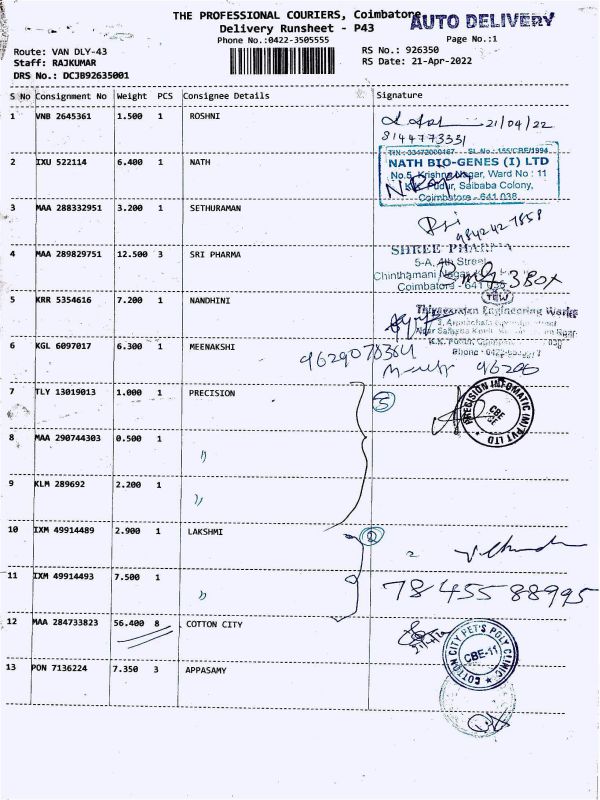 THE PROFESSIONAL COURIERS, Coimbatore
AUTO DELIVERY
Delivery Runsheet - P43
Phone No.:0422-3505555
Page No.:1
Route: VAN DLY-43
RS No.: 926350
Staff: RAJKUMAR
RS Date: 21-Apr-2022
DRS No.: DCJB92635001
S No Consignment No Weight PCS Consignee Details Signature
1 VNB 2645361 1.500 1 ROSHNI
21/04/22
8144773331
2 IXU 522114 6.400 1 NATH
NATH BIO-GENES (I) LTD
No.5, Krishna Nagar, Ward No : 11
Pudur, Saibaba Colony,
Coimbatore - 641 038
3 MAA 288332951 3.200 1 SETHURAMAN
4 MAA 289829751 12.500 3 SRI PHARMA
SHREE PHARMA
5-A, 4th Street
Chinthamani Nagar
Coimbatore - 641 038
3 BOX
5 KRR 5354616 7.200 1 NANDHINI
TEW
Thiyagarajan Engineering Works
6 KGL 6097017 6.300 1 MEENAKSHI
7 TLY 13019013 1.000 1 PRECISION
3
PRECISION INFOMATIC (M) PVT LTD
CBE
8 MAA 290744303 0.500 1 "
9 KLM 289692 2.200 1 "
10 IXM 49914489 2.900 1 LAKSHMI
2
11 IXM 49914493 7.500 1 "
7845588995
12 MAA 284733823 56.400 8 COTTON CITY
COTTON CITY PET'S POLY CLINIC
CBE-11
13 PON 7136224 7.350 3 APPASAMY